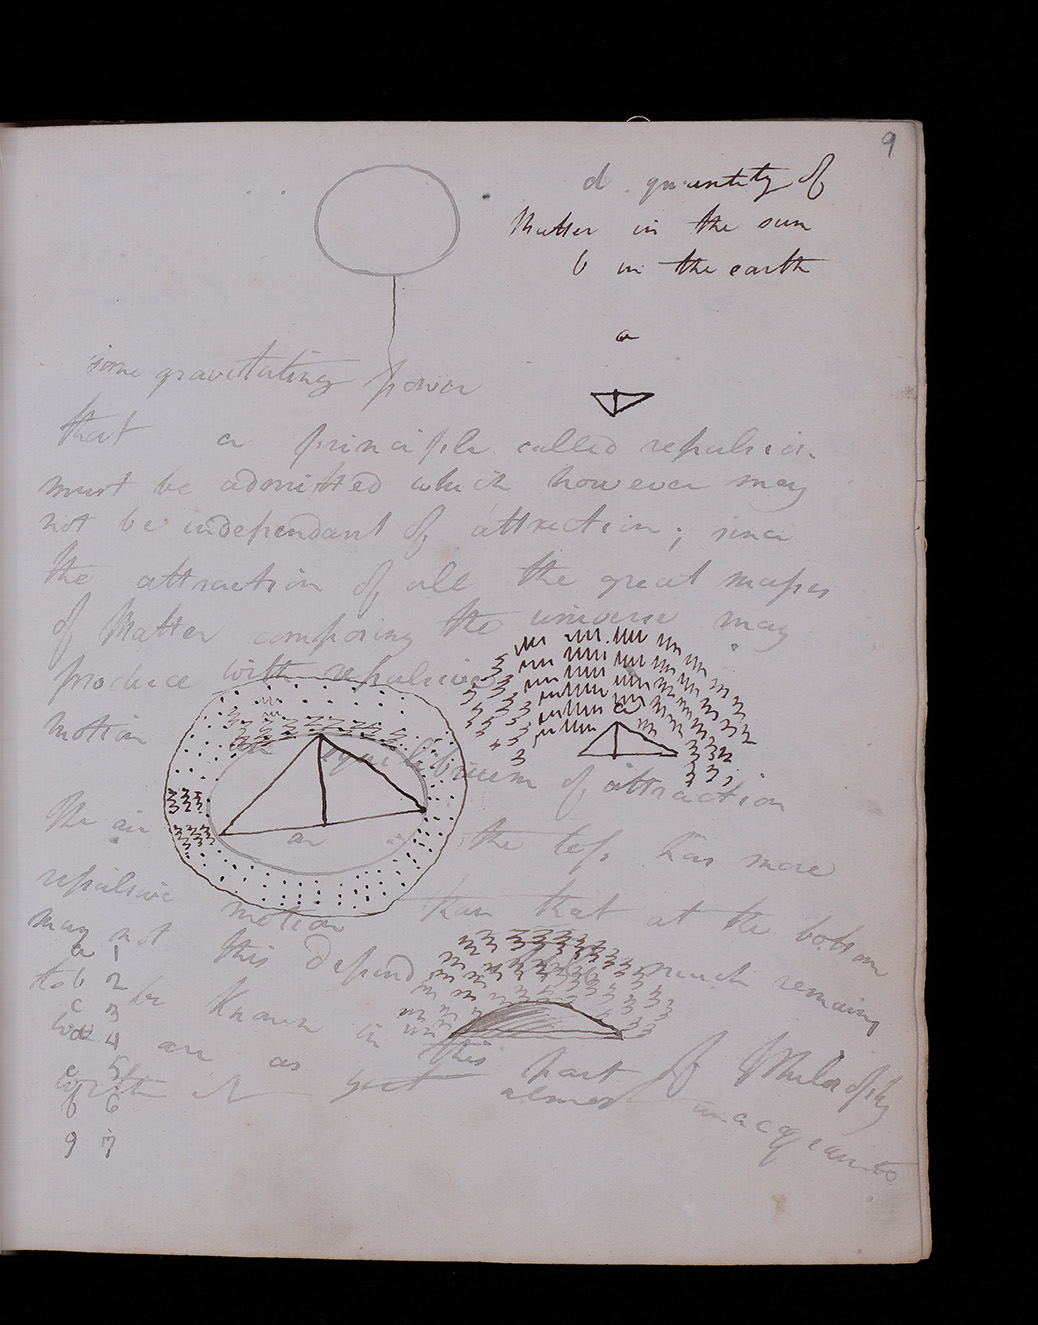 9
d quantity of
Matter in the sun
b in the earth
a
some gravitating power
that a principle called repulsion
must be admitted which however may
not be independant of attraction; since
the attraction of all the great masses
of Matter composing the universe may
produce with repulsive
motion an equilibrium of attraction
a
a
The air at the top has more
repulsive motion than that at the bottom
may not this depend much remains
to be known in this part of Philosophy
we are as yet almost unacquainted
with it
a 1
b 2
c 3
d 4
e 5
6
g 7